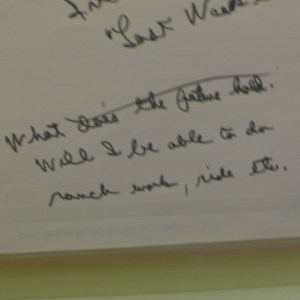 "Last
What does the future hold.
Will I be able to do
ranch work, ride etc.